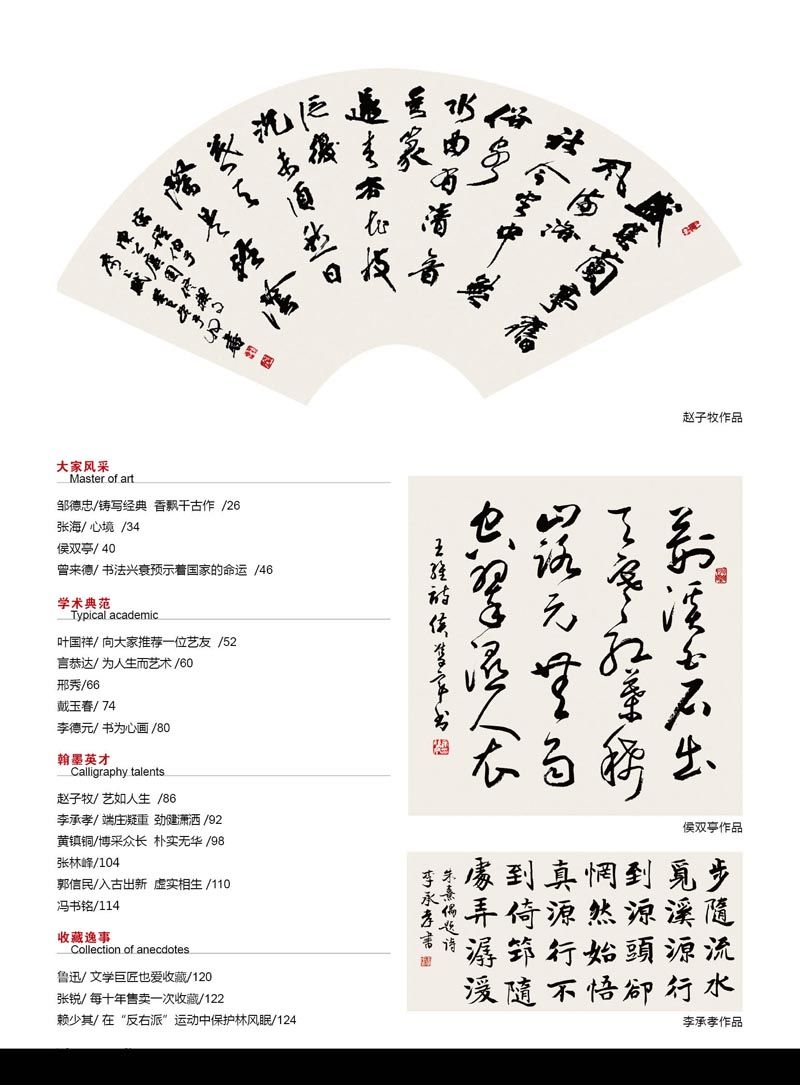 盛集蘭亭舊
風流洛
社今坐中無
俗客
水曲有清音
赵子牧作品
大家风采
Master of art
邹德忠/铸写经典 香飘千古作 /26
张海/ 心境 /34
侯双亭/ 40
曾来德/ 书法兴衰预示着国家的命运 /46
学术典范
Typical academic
叶国祥/ 向大家推荐一位艺友 /52
言恭达/ 为人生而艺术 /60
邢秀/66
戴玉春/ 74
李德元/ 书为心画 /80
翰墨英才
Calligraphy talents
赵子牧/ 艺如人生 /86
李承孝/ 端庄凝重 劲健潇洒 /92
黄镇铜/博采众长 朴实无华 /98
张林峰/104
郭信民/入古出新 虚实相生 /110
冯书铭/114
收藏逸事
Collection of anecdotes
鲁迅/ 文学巨匠也爱收藏/120
张锐/ 每十年售卖一次收藏/122
赖少其/ 在“反右派”运动中保护林风眠/124
荊溪白石出
天寒紅葉稀
山路元無雨
空翠濕人衣
王維詩侯雙亭書
侯双亭作品
步隨流水
覓溪源行
到源頭卻
惘然始悟
真源行不
到倚筇隨
處弄潺湲
朱熹偶題詩
李承孝書
李承孝作品